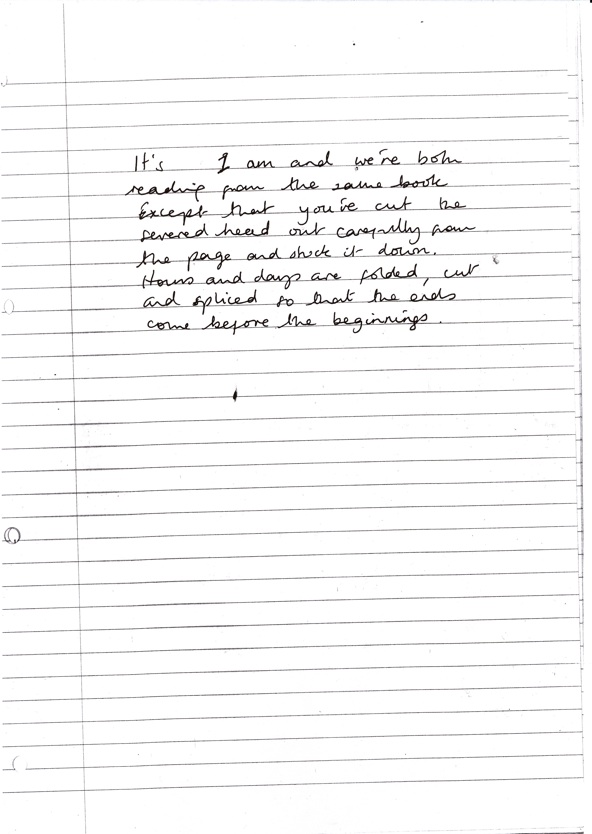 It's I am and we're both
reading from the same book
Except that you've cut the
severed head out carefully from
the page and stuck it down.
Hours and days are folded, cut
and spliced so that the ends
come before the beginnings.